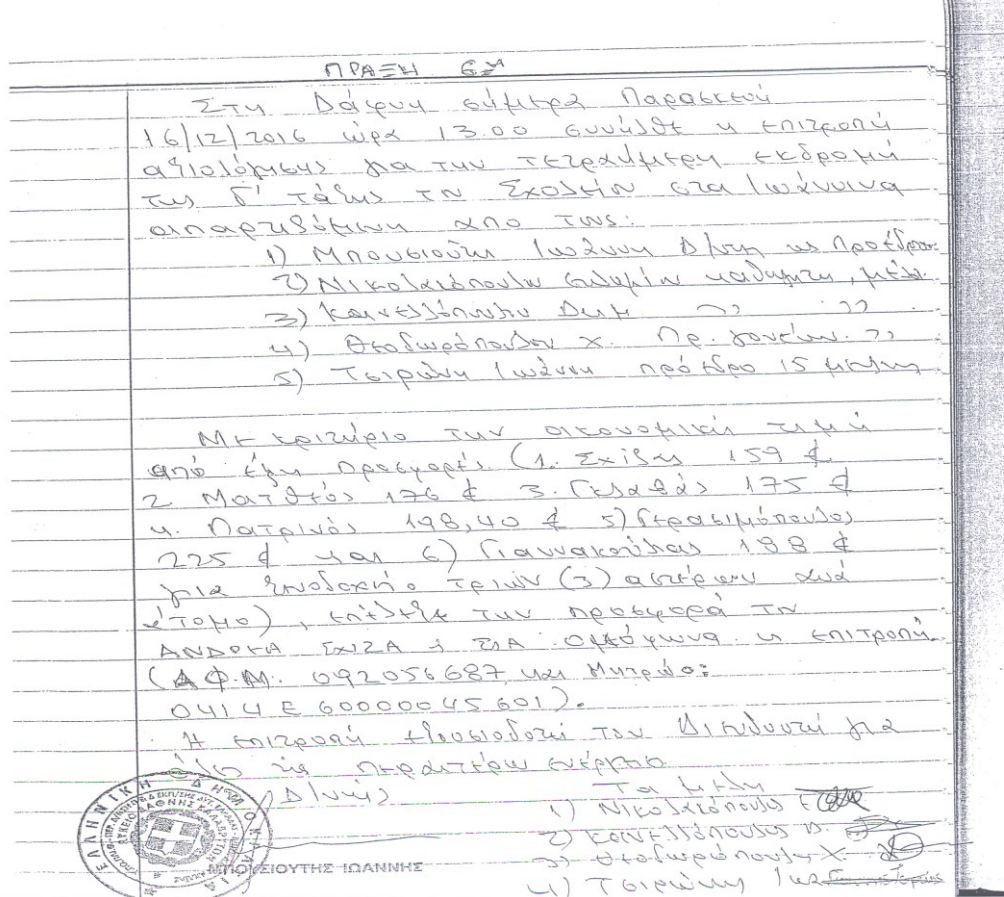 ΠΡΑΞΗ 6η
Στη Δάφνη σήμερα Παρασκευή
16/12/2016 ώρα 13.00 συνήλθε η επιτροπή
αξιολόγησης για την τετραήμερη εκδρομή
της Γ' τάξης του Σχολείου στα Ιωάννινα
απαρτιζόμενη από τους:
1) Μπουσιούτη Ιωάννη Δ/ντη ως Πρόεδρο
2) Νικολαιόπουλο καθηγητή, μέλος
3) Κανελλόπουλου Δημ ,, ,,
4) Θεοδωρόπουλου Χ. Πρ. γονέων. ,,
5) Τσιρώνη Ιωάννη πρόεδρο 15 μελους
Με κριτήριο την οικονομική τιμή
από έξη προσφορές (1. Σχίζης 159 €
2 Ματθεός 176 € 3. Γκλαβάς 175 €
4. Πατρινός 198,40 € 5) Γερασιμόπουλος
225 € και 6) Γιαννακούλας 188 €
για ξενοδοχείο τριών (3) αστέρων ανά
άτομο), επέλεξε την προσφορά του
ΑΝΔΡΕΑ ΣΧΙΖΑ & ΣΙΑ ομόφωνα η επιτροπή
(Α.Φ.Μ. 092056687 και Μητρώο:
0414Ε60000045601).
Η επιτροπή εξουσιοδοτεί τον Διευθυντή για
όλες τις περαιτέρω ενέργειες
Ο Δ/ντής
Τα μέλη
1) Νικολαιόπουλος
2) Κανελλόπουλος Δ.
ΜΠΟΥΣΙΟΥΤΗΣ ΙΩΑΝΝΗΣ
3) Θεοδωρόπουλος Χ.
4) Τσιρώνης Ιωα
ΕΛΛΗΝΙΚΗ ΔΗΜΟΚΡΑΤΙΑ